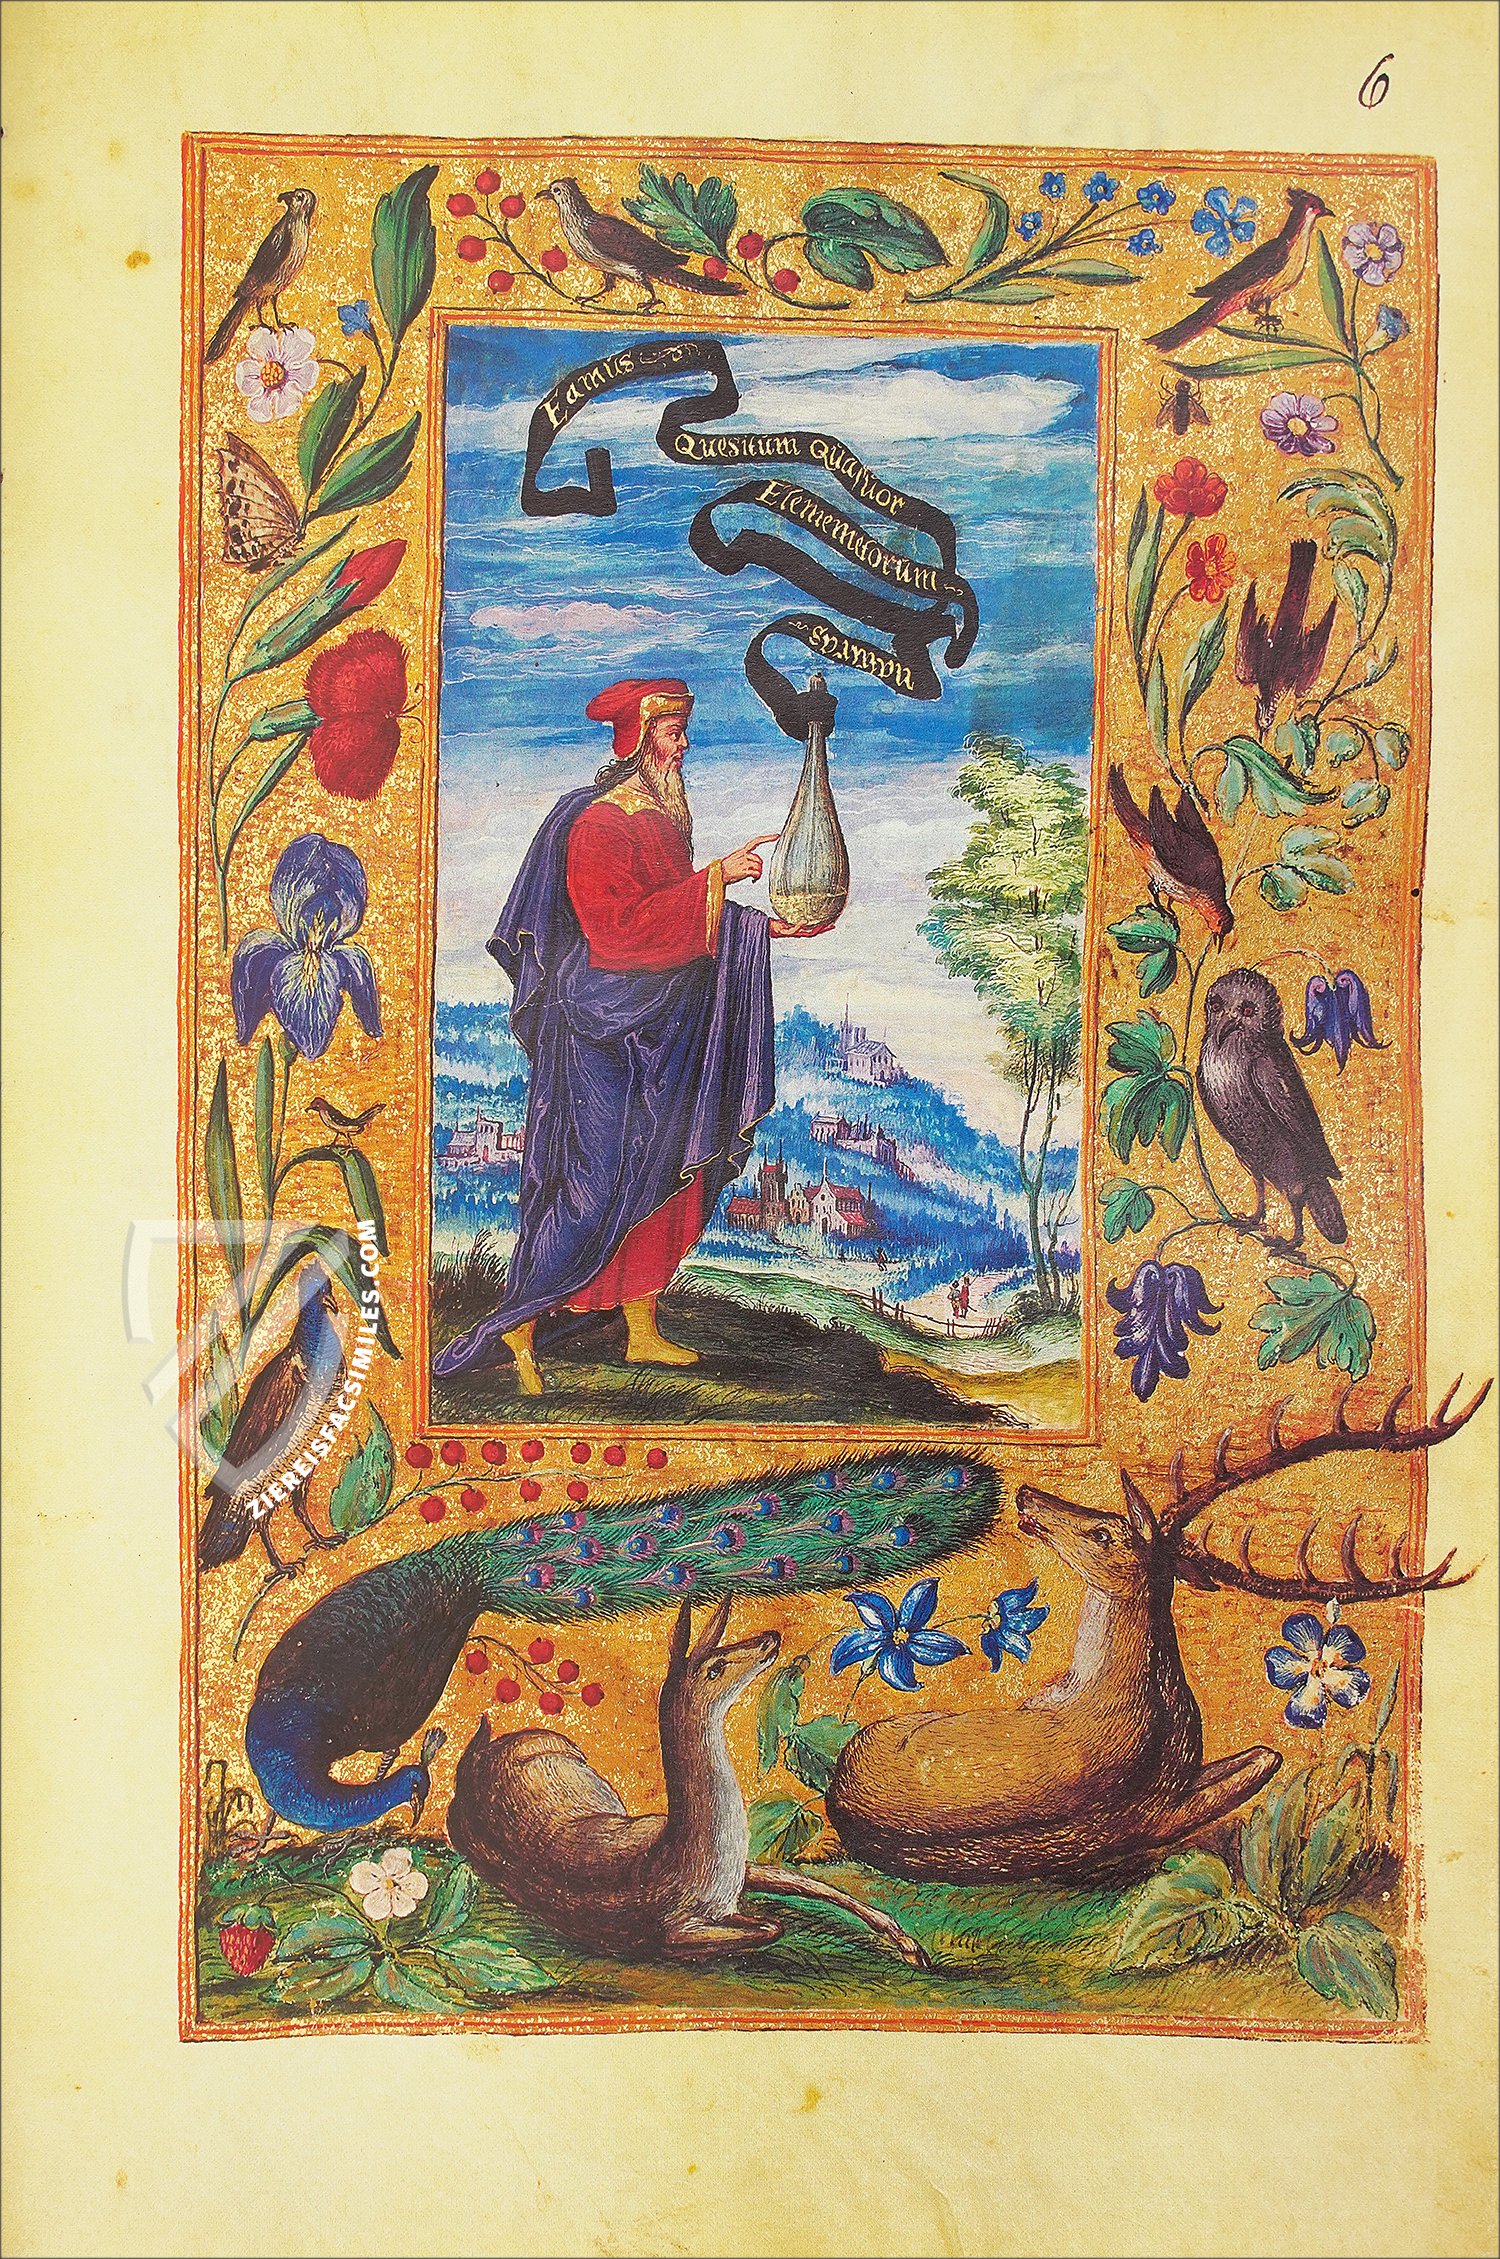 6
Eamus
Quesitum Quatuor
Elementorum
naturas
ZIEREISFACSIMILES.COM